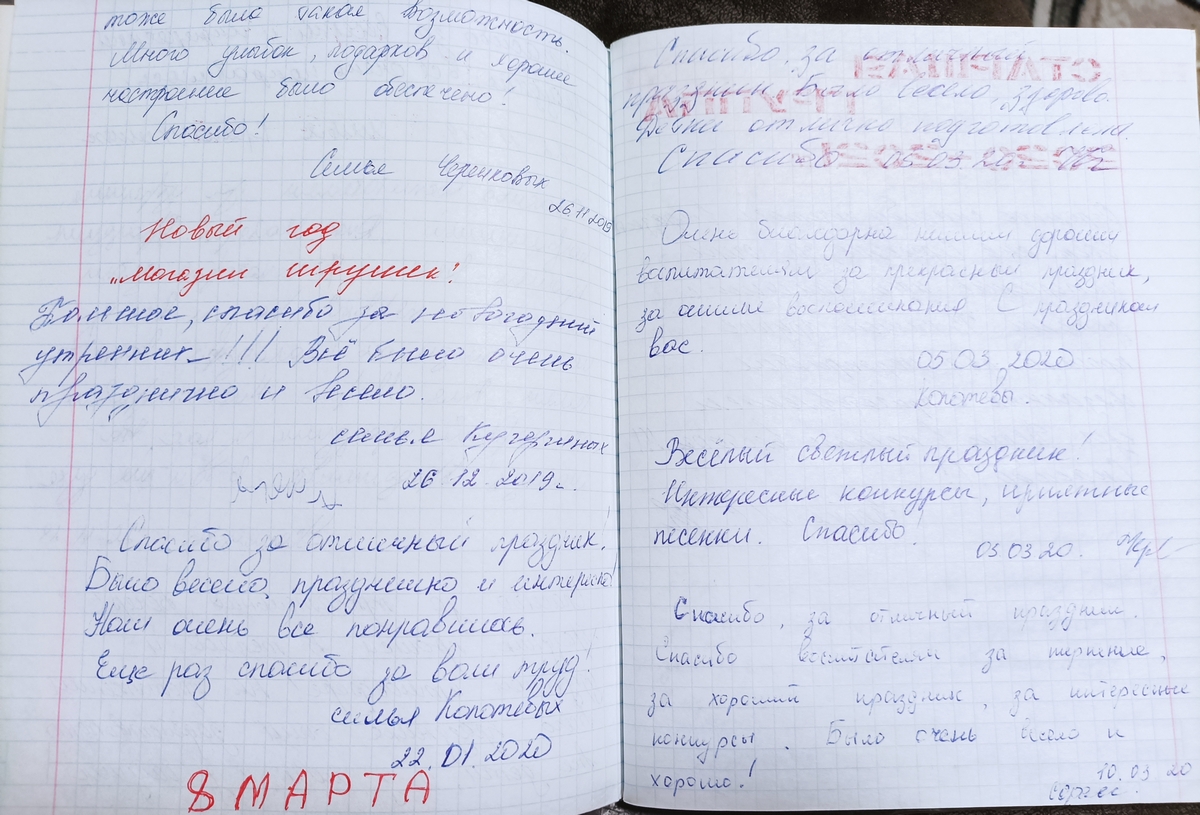 тоже была такая возможность.
Много улыбок, подарков и хорошее
настроение было обеспечено!
Спасибо!
Семья Черенковых
26.11.2019
Новый год
"Магазин игрушек!
Большое, спасибо за новогодний
утренник!!! Всё было очень
празднично и весело.
семья Кугергиных
26.12.2019г.
Спасибо за отличный праздник!
Было весело, празднично и интересно!
Нам очень все понравилось.
Еще раз спасибо за ваш труд!
семья Колотевых
22.01.2020
8 МАРТА
Спасибо, за отличный
праздник. Было весело, здорово.
Детки отлично подготовлены.
Спасибо 05.03.20
Очень благодарна нашим дорогим
воспитателям за прекрасный праздник,
за воспоминания С праздником
вас.
05.03.2020
Колотевы.
Весёлый светлый праздник!
Интересные конкурсы, приятные
песенки. Спасибо!
03.03.20.
Спасибо, за отличный праздник.
Спасибо воспитателям за терпение,
за хороший праздник, за интересные
конкурсы. Было очень весело и
хорошо!
10.03.20